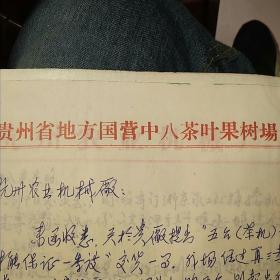 贵州省地方国营中八茶叶果树場
杭州农业机械厰：
来函收悉，关於贵厰提出"五台（茶机）
能保证一季度"交货一事，我场经过再三